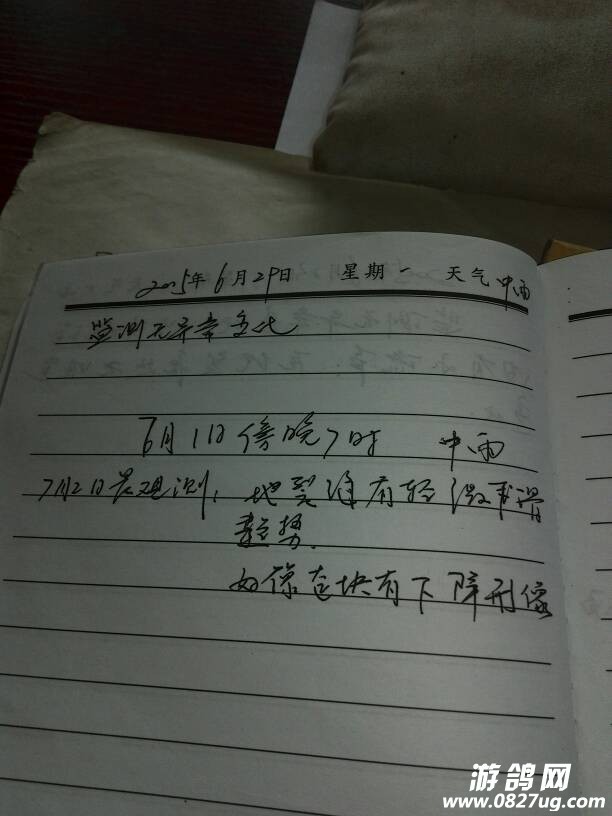 2015年6月29日 星期一 天气 中雨
监测无异常变化
6月1日傍晚7时 中雨
7月2日晨观测,地裂缝有轻微下滑
趋势.
好像这块有下降形像
游鸽网
www.0827ug.com